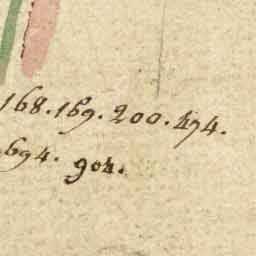 168. 169. 200. 474.
694. 904.